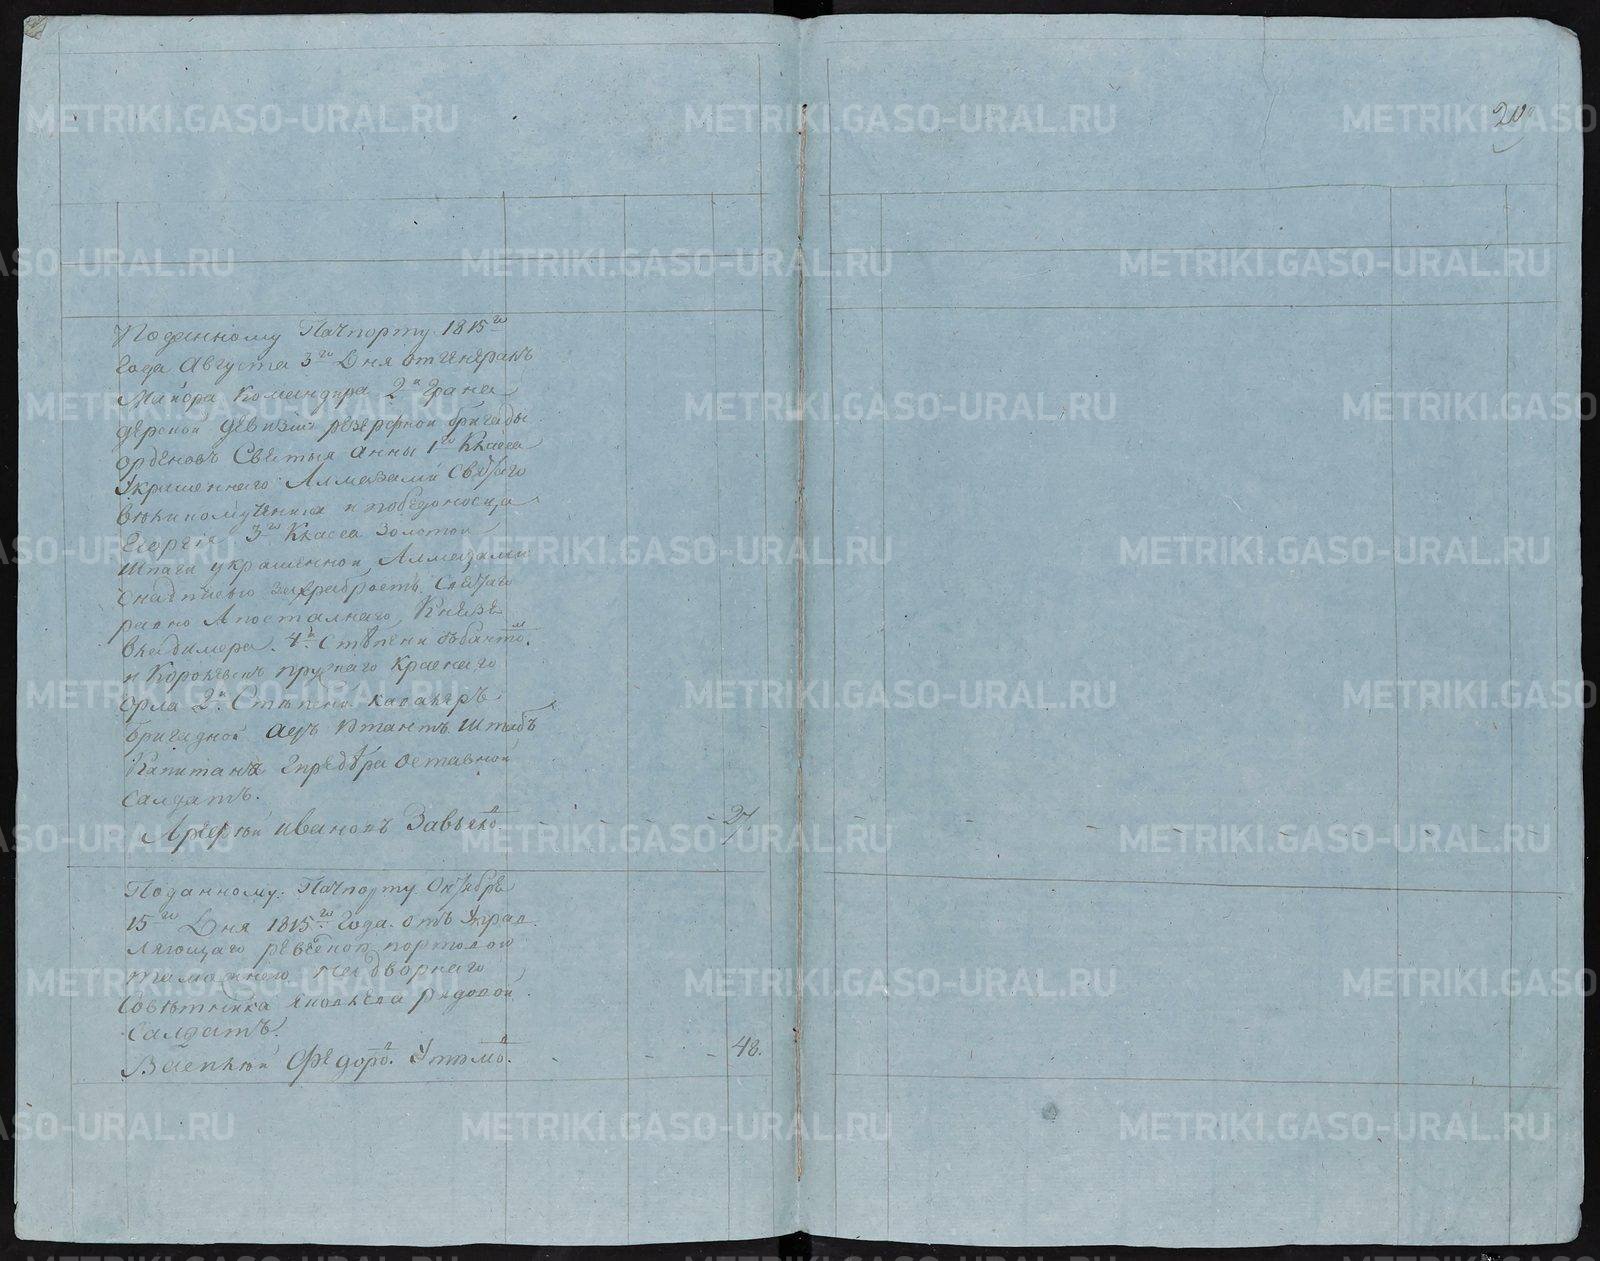 20
Поданному Пачпорту 1815го
Года Августа 3го Дня отгенералъ
Маиора Командира 2й Грана
дерской девизии резерфной бригады
орденовъ Святыя Анны 1го Класса
Украшеннаго Алмазами Святаго
великомученика и победоносца
Георгия 3го Класса Золотой
шпаги украшенной Алмазами
снадписью захрабрость Святаго
равно Апосталнаго Князя
владимера 4й Степени
и пружаго Краснаго
орла 2й Степени кавалеръ
бригадной Штабъ
Капитана отставной
салдатъ.
иванонъ Завьяло 27.
Поданному Пачпорту Октября
15го Дня 1815го Года отъ Управ
ляющаго портовой
таможнею надворнаго
Советника рядовой
Салдатъ.
Василей Федоро 48.
METRIKI.GASO-URAL.RU